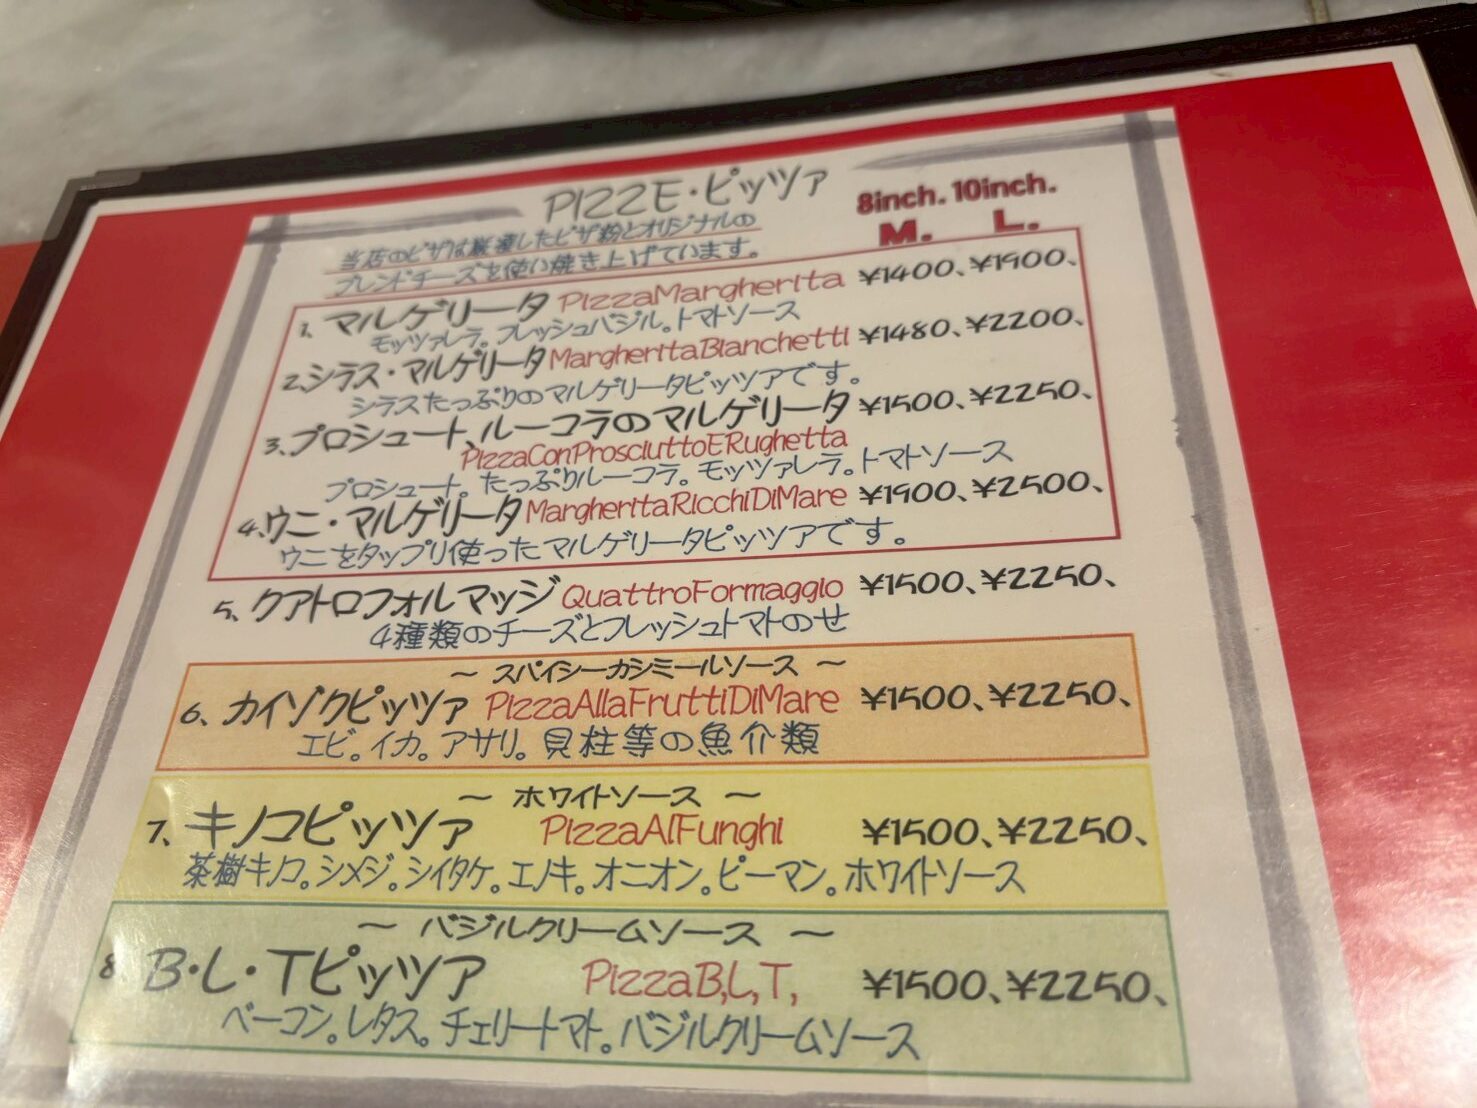 PIZZE・ピッツァ
8inch. 10inch.
M. L.
当店のピザは厳選したピザ粉とオリジナルの
ブレンドチーズを使い焼き上げています。
1、マルゲリータ PizzaMargherita ¥1400、¥1900、
モッツァレラ。フレッシュバジル。トマトソース
2、シラス・マルゲリータ MargheritaBianchetti ¥1480、¥2200、
シラスたっぷりのマルゲリータピッツァです。
3、プロシュート、ルーコラのマルゲリータ ¥1500、¥2250、
PizzaConProsciuttoERughetta
プロシュート。たっぷりルーコラ。モッツァレラ。トマトソース
4、ウニ・マルゲリータ MargheritaRicchiDiMare ¥1900、¥2500、
ウニをタップリ使ったマルゲリータピッツァです。
5、クアトロフォルマッジ QuattroFormaggio ¥1500、¥2250、
4種類のチーズとフレッシュトマトのせ
～ スパイシーカシミールソース ～
6、カイゾクピッツァ PizzaAllaFruttiDiMare ¥1500、¥2250、
エビ。イカ。アサリ。貝柱等の魚介類
～ ホワイトソース ～
7、キノコピッツァ PizzaAlFunghi ¥1500、¥2250、
茶樹キノコ。シメジ。シイタケ。エノキ。オニオン。ピーマン。ホワイトソース
～ バジルクリームソース ～
8 B・L・Tピッツァ PizzaB,L,T, ¥1500、¥2250、
ベーコン。レタス。チェリートマト。バジルクリームソース